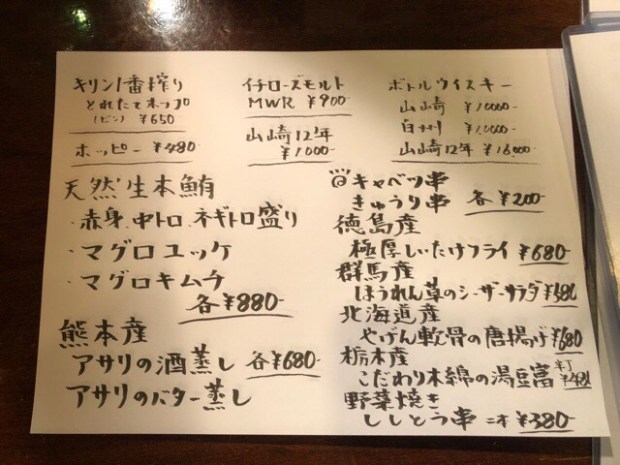 キリン一番搾り
とれたてホップ
(ビン) ¥650
ホッピー ¥480
イチローズモルト
MWR ¥900
山崎12年
¥1000-
ボトルウイスキー
山崎 ¥10000-
白州 ¥10000-
山崎12年 ¥16,000-
天然生本鮪
・赤身、中トロ、ネギトロ盛り
・マグロユッケ
・マグロキムチ
各¥880-
熊本産
アサリの酒蒸し 各¥680-
アサリのバター蒸し
キャベツ串
きゅうり串 各¥200-
徳島産
極厚しいたけフライ ¥680-
群馬産
ほうれん草のシーザーサラダ
北海道産
やげん軟骨の唐揚げ ¥680
栃木産
こだわり木綿の湯豆富 半丁
野菜焼き
ししとう串 二本 ¥380-